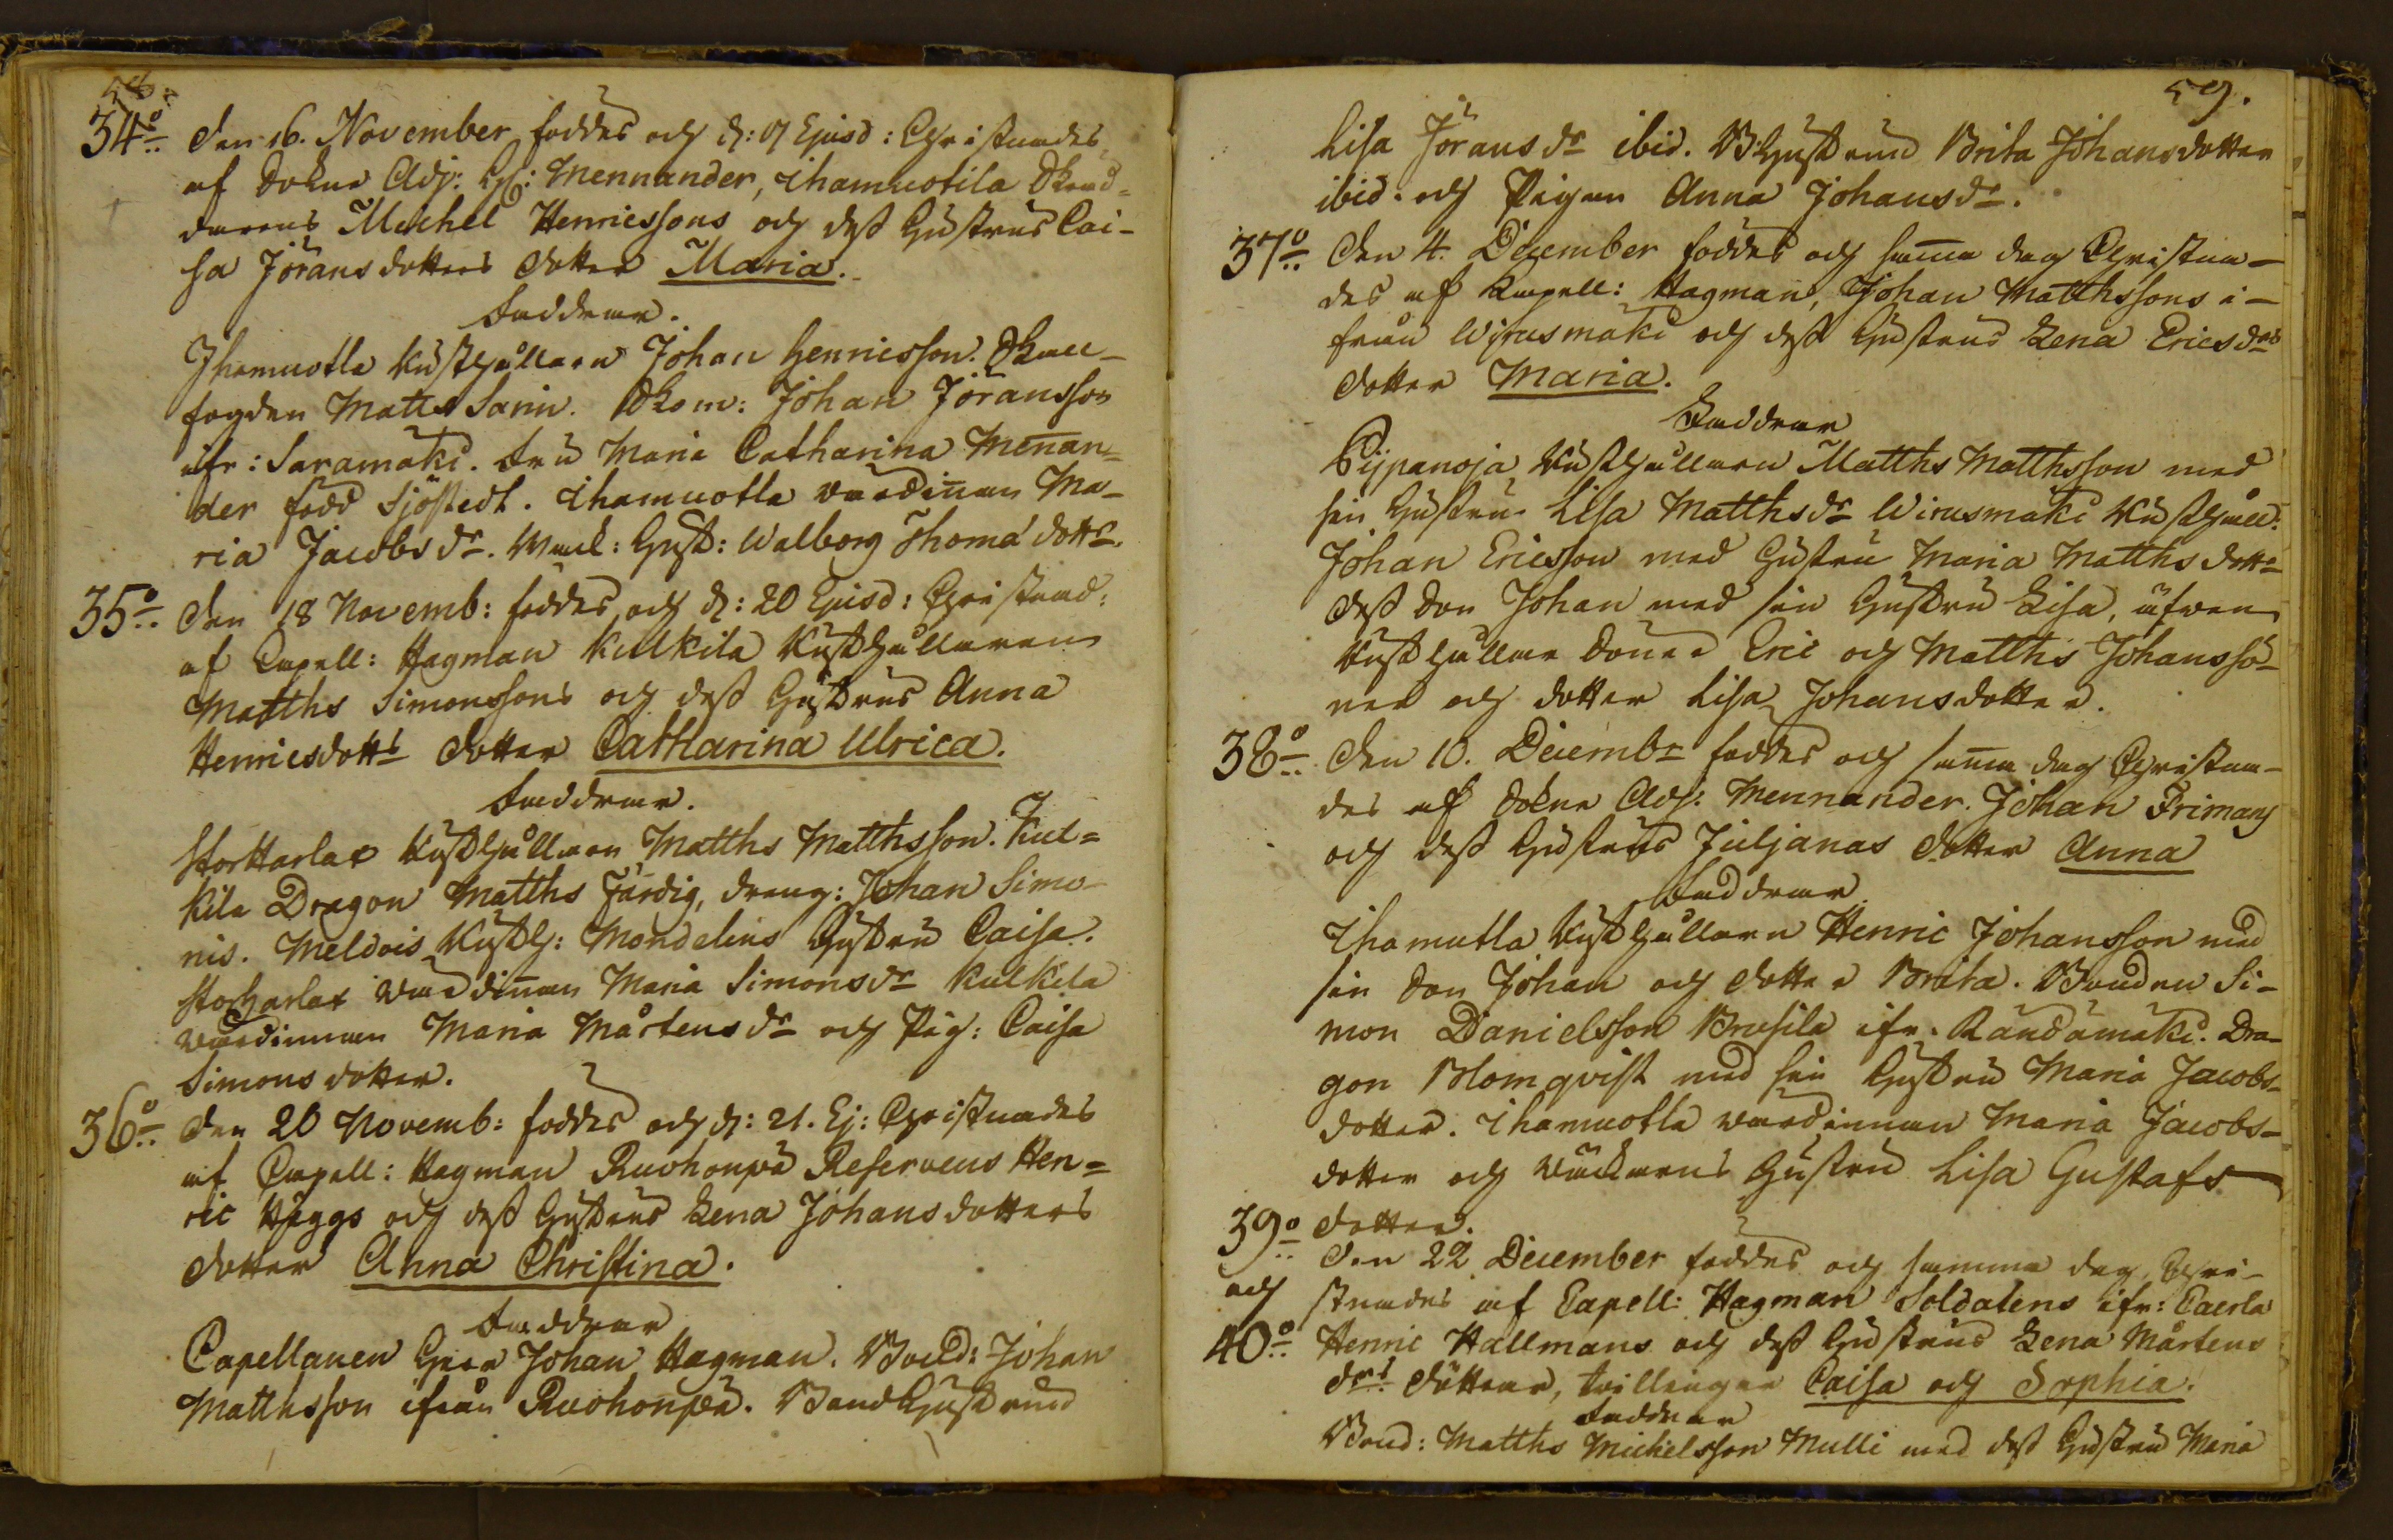 58.
34º Den 16. November föddes och d: 17 Ejusd: Christnades
af Sokne Adj: H: Mennander, Ihamuotila Skred-
darens Michel Henricssons och dess Hustrus Cai-
sa Jöransdotters dotter Maria.
Faddrar.
Ihamuotla Rusthållarn Johan Henricsson. Skall-
fogden Matts Sarin. Skom: Johan Jöransson
ifr: Saramäki. Fru Maria Catharina Menan-
der född Sjöstedt. Ihamuotla Wärdinnan Ma-
ria Jacobs dr. Hust: Walborg Thomæ dottr.
35º Den 18 Novemb: föddes, och d: 20 Ejusd: Christnad:
af Capell: Hagman Kulkila Rusthållarens
Matths Simonssons och dess Hustrus Anna
Henricsdotts dotter Catharina Ulrica.
Faddrar.
StorHarlax Rusthållarn Matths Matthsson. Kul-
kila Dragon Matths Färdig, dreng: Johan Simo-
nis. Meldois Rusth: Mondelins Hustru Caisa.
Storharlax Wärdinnan Maria Simonsdr Kulkila
wärdinnan Maria Mårtensdr och Pig: Caisa
Simonsdotter.
36º Den 20 Novemb: föddes och d: 21. Ej: Christnades
af Capell: Hagman Ruohonpä Reservens Hen-
ric Häggs och dess Hustrus Lena Johansdotters
dotter Anna Christina.
Faddrar
Capellanen Herr Johan Hagman. Bond: Johan
Matthsson ifrån Ruohonpä. Bondhustrun
59.
Lisa Jöransdr ibid. B:hustrun Brita Johansdotter
ibid: och Pigan Anna Johansdr.
37º Den 4. December föddes och samma dag Christna-
des af Capell: Hagman, Johan Matthssons i-
från Wirusmäki och dess Hustrus Lena Ericsdrs
dotter Maria.
Faddrar
Pijpanoja Rusthållaren Matths Matthsson med
sin Hustru Lisa Matthsdr Wirusmäki Rusthåll:
Johan Ericsson med Hustru Maria Matthsdottr
dess Son Johan med sin Hustru Lisa, äfwen
Rusthållar Söner Eric och Matths Johansso-
ner och dotter Lisa Johansdotter.
38º Den 10. Decembr föddes och samma dag Christna-
des af Sokne Adj: Mennander. Johan Frimans
och dess Hustrus Juljanas dotter Anna
Faddrar
Ihamutla Rusthållarn Henric Johansson med
sin Son Johan och dotter Brita. Bonden Si-
mon Danielsson Brusila ifr. Randamäki. Dra-
gon Blomqvist med sin Hustru Maria Jacobs-
dotter. Ihamuotla wärdinnan Maria Jacobs-
dotter och Hustru Lisa Gustafs
dotter.
39º Den 22 December föddes och samma dag Chri-
och stnades af Capell: Hagman Soldatens ifr: Caerla
40º Henric Hallmans och dess Hustrus Lena Mårtens
drs döttrar, twillingar Caisa och Sophia.
Faddrar
Bond: Matths Michelsson Mulli med dess Hustru Maria